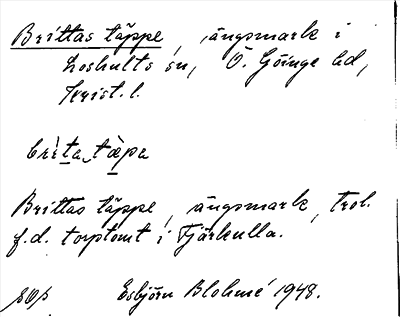 Brittas täppe, ängsmark i
Loshults sn, Ö. Göinge hd,
Krist. l.
brìta tæ̀pa
Brittas täppe, ängsmark, trol.
f.d. torptomt i Tjärhulla.
Esbjörn Blohmé 1948.